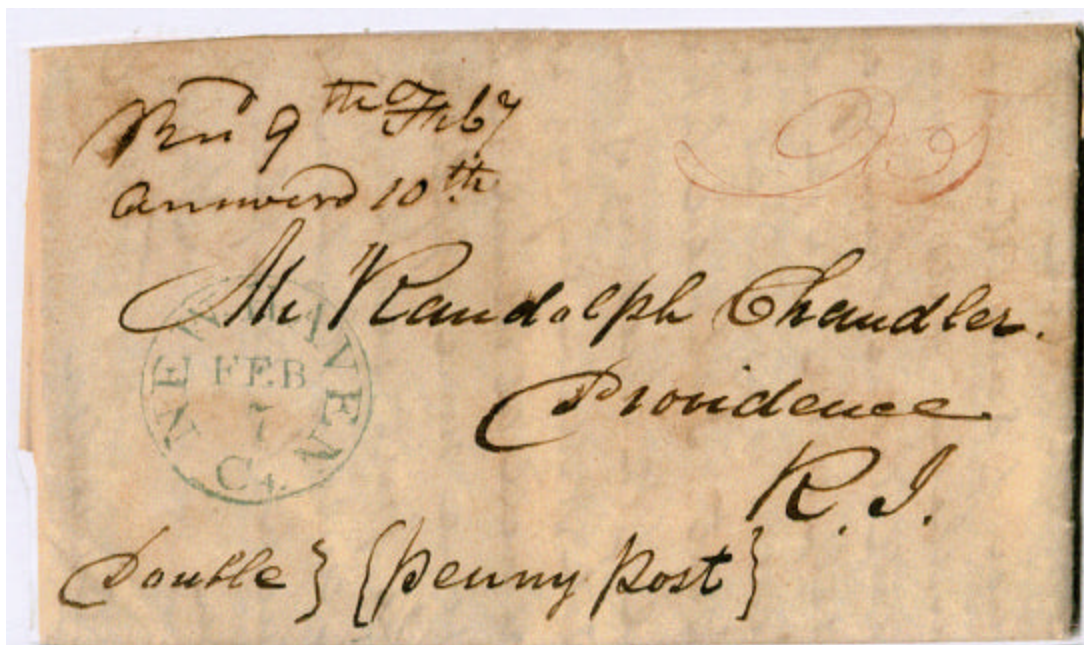 Recd 9th Feby
Answerd 10th
25
Mr Randolph Chandler.
Providence
R. I.
NEW HAVEN
FEB
7
Ct.
Double } { penny post }